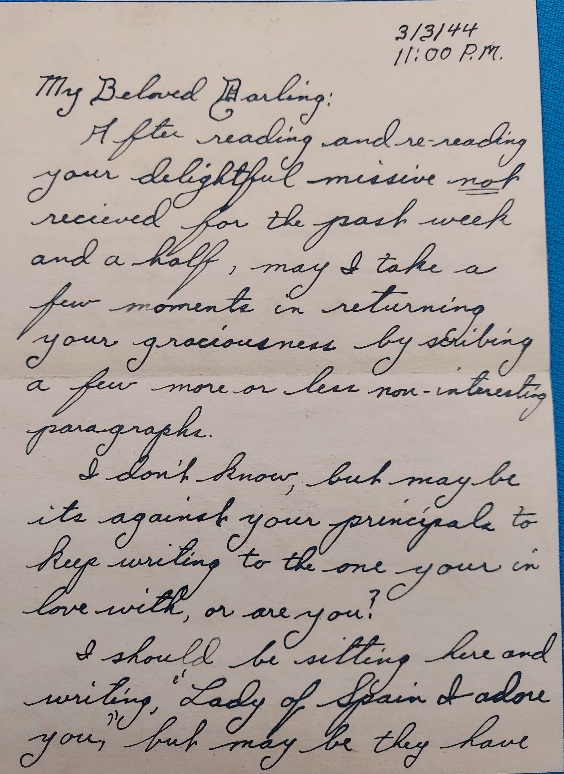 3/3/44
11:00 P.M.
My Beloved Darling:
After reading and re-reading
your delightful missive not
recieved for the past week
and a half, may I take a
few moments in returning
your graciousness by scribing
a few more or less non-interesting
paragraphs.
I don't know, but may be
its against your principals to
keep writing to the one your in
love with, or are you?
I should be sitting here and
writing, "Lady of Spain I adore
you," but may be they have